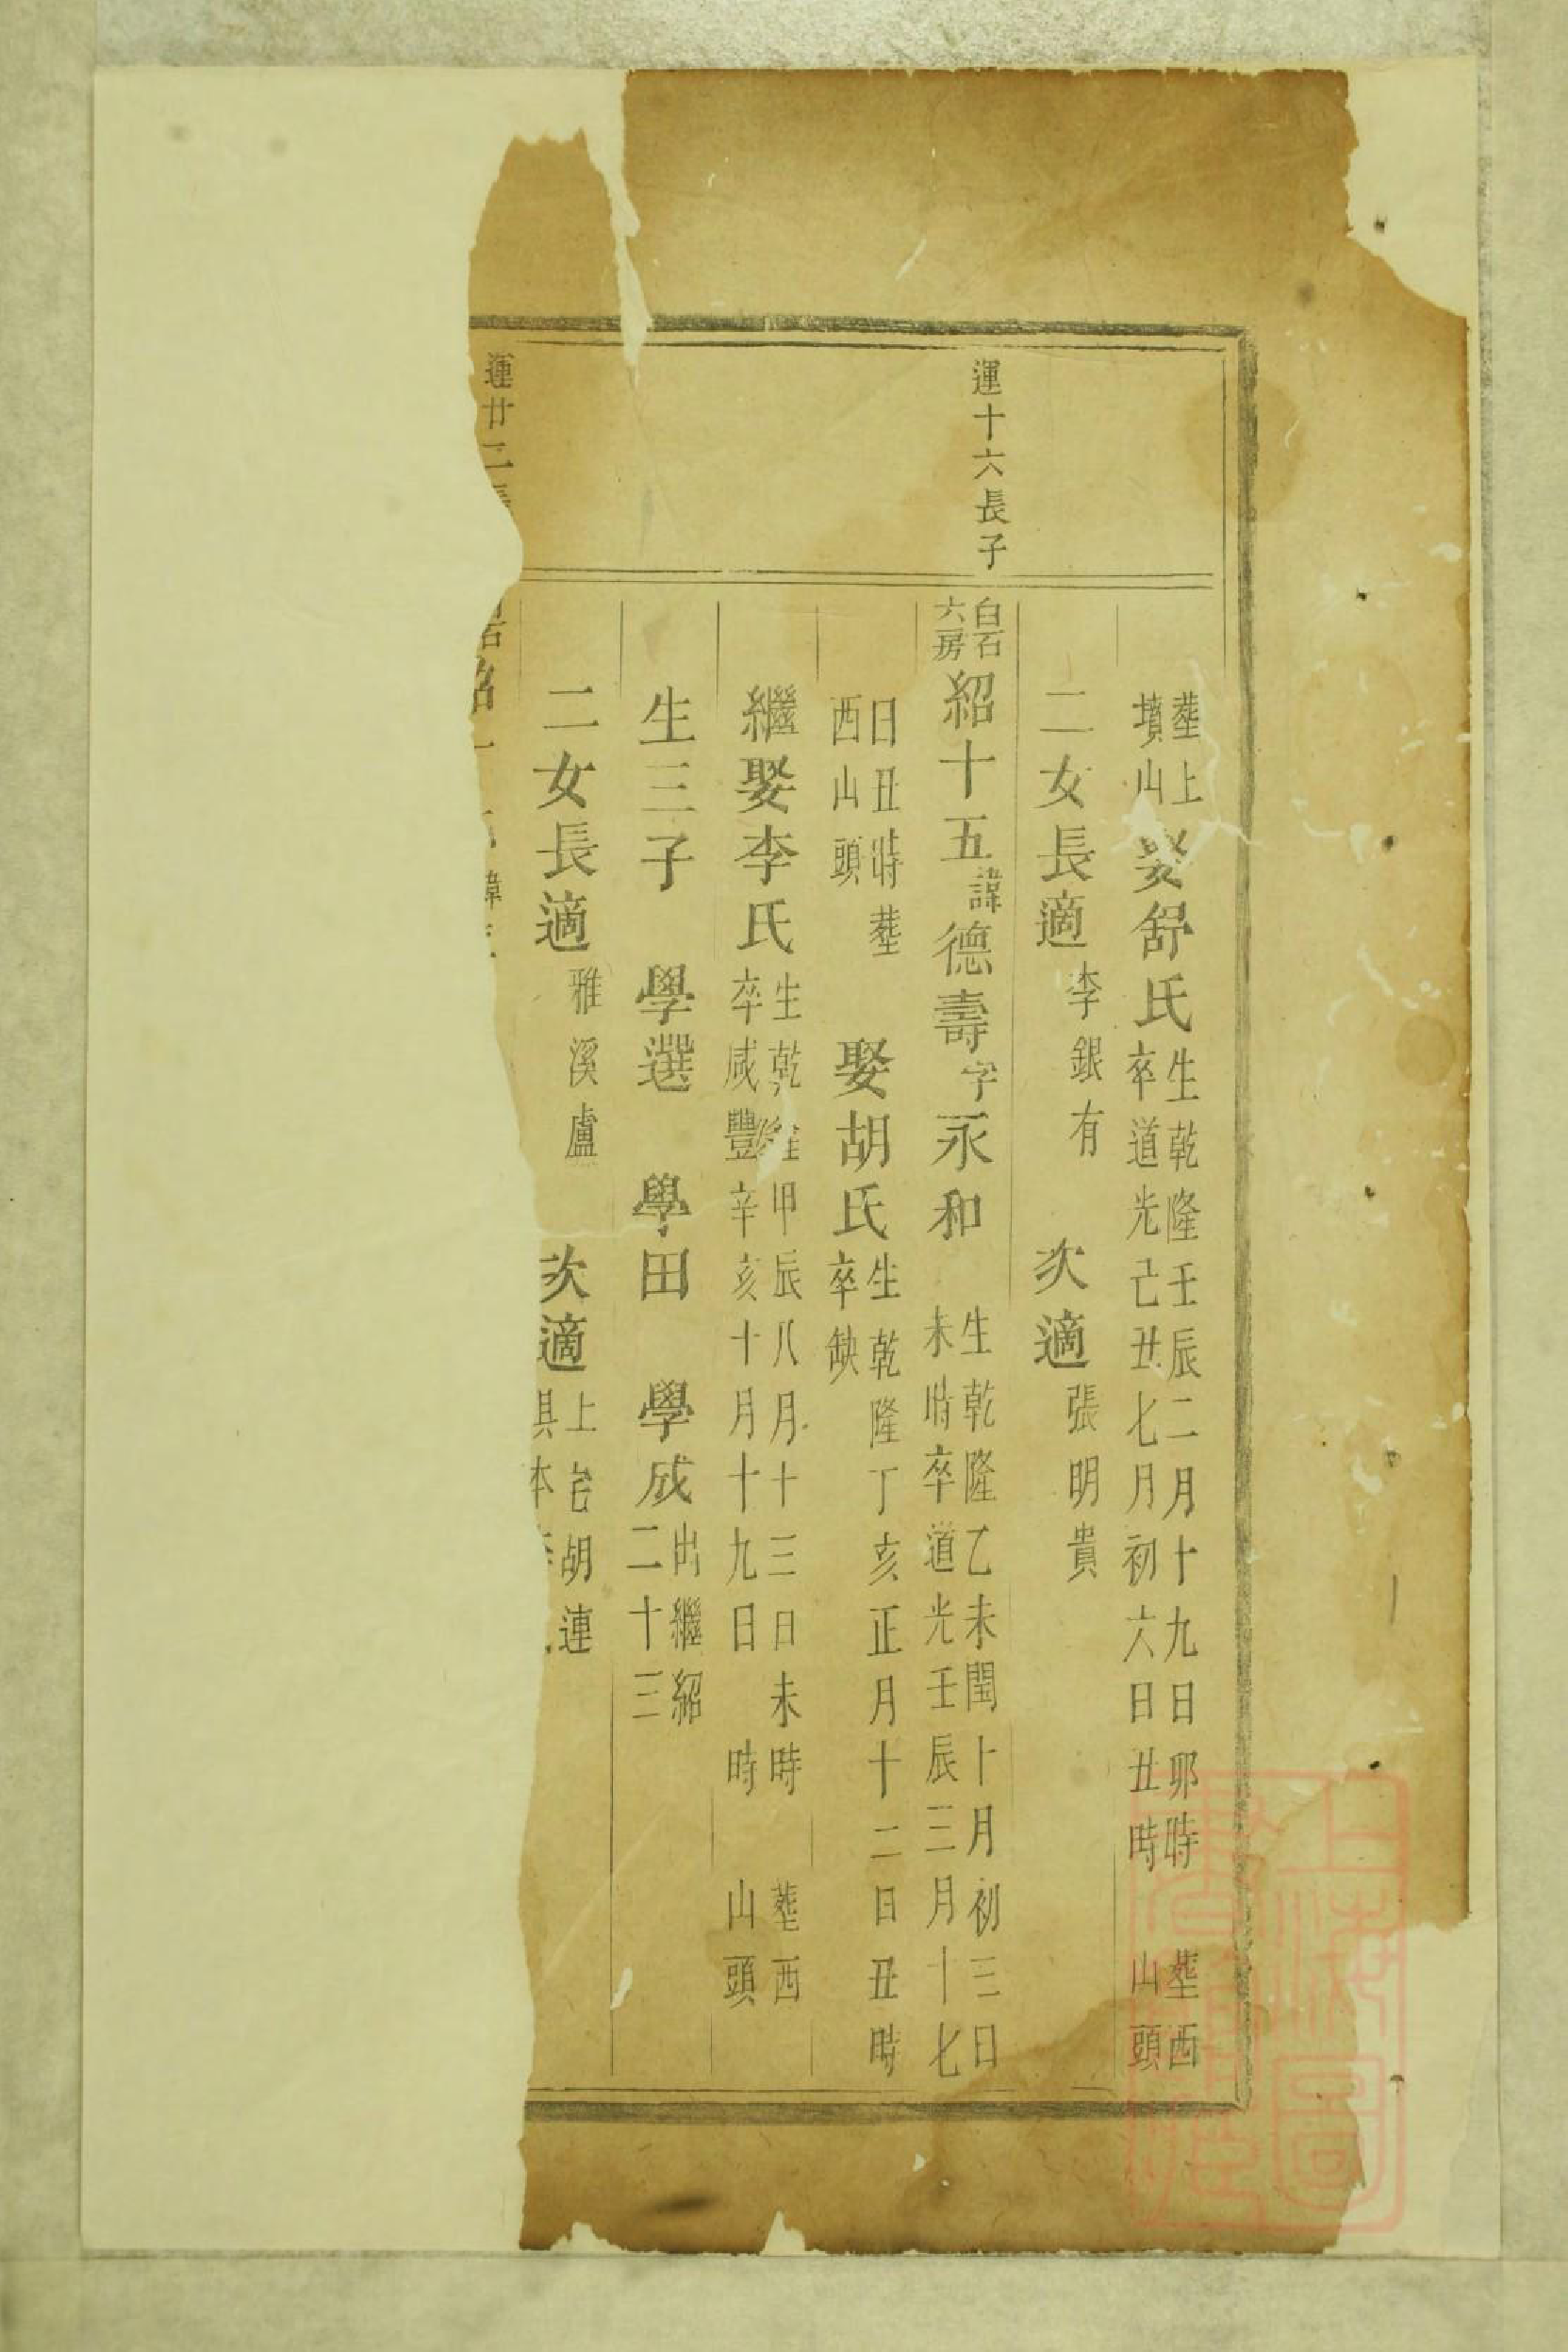 塟上墳山娶舒氏生乾隆壬辰二月十九日卯時卒道光己丑七月初六日丑時塟西山頭
二女長適李銀有次適張明貴
運十六長子
白石六房紹十五諱德壽字永和生乾隆乙未閏十月初三日未時卒道光壬辰三月十七
日丑時塟西山頭娶胡氏生乾隆丁亥正月十二日丑時卒缺
繼娶李氏生乾隆甲辰八月十三日未時卒咸豐辛亥十月十九日時塟西山頭
生三子學選學田學成出繼紹二十三
二女長適雅溪盧次適上台胡連具本
運廿二長
紹諱
上海圖書館藏